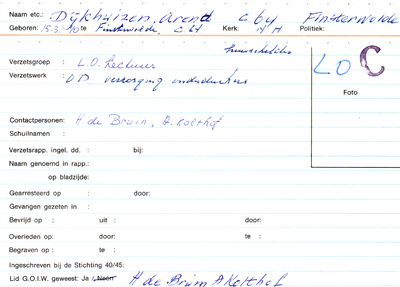 Naam etc.: Dijkhuizen, Arend C 64 Finsterwolde
Geboren: 15.3.10 te Finsterwolde, C 64 Kerk: NH Politiek:
huisschilder
Verzetsgroep : L.O. Lectuur LO C
Verzetswerk : O.D. verzorging onderduikers
Foto
Contactpersonen: H de Bruin, A. Kolthof
Schuilnaam :
Verzetsrapp. ingel. dd. : bij:
Naam genoemd in rapp.:
op bladzijde:
Gearresteerd op : door:
Gevangen gezeten in :
Bevrijd op : uit : door:
Overleden op: door: te :
Begraven op : te :
Ingeschreven bij de Stichting 40/45:
Lid G.O.I.W. geweest: Ja / Neen H de Bruin A Kolthof